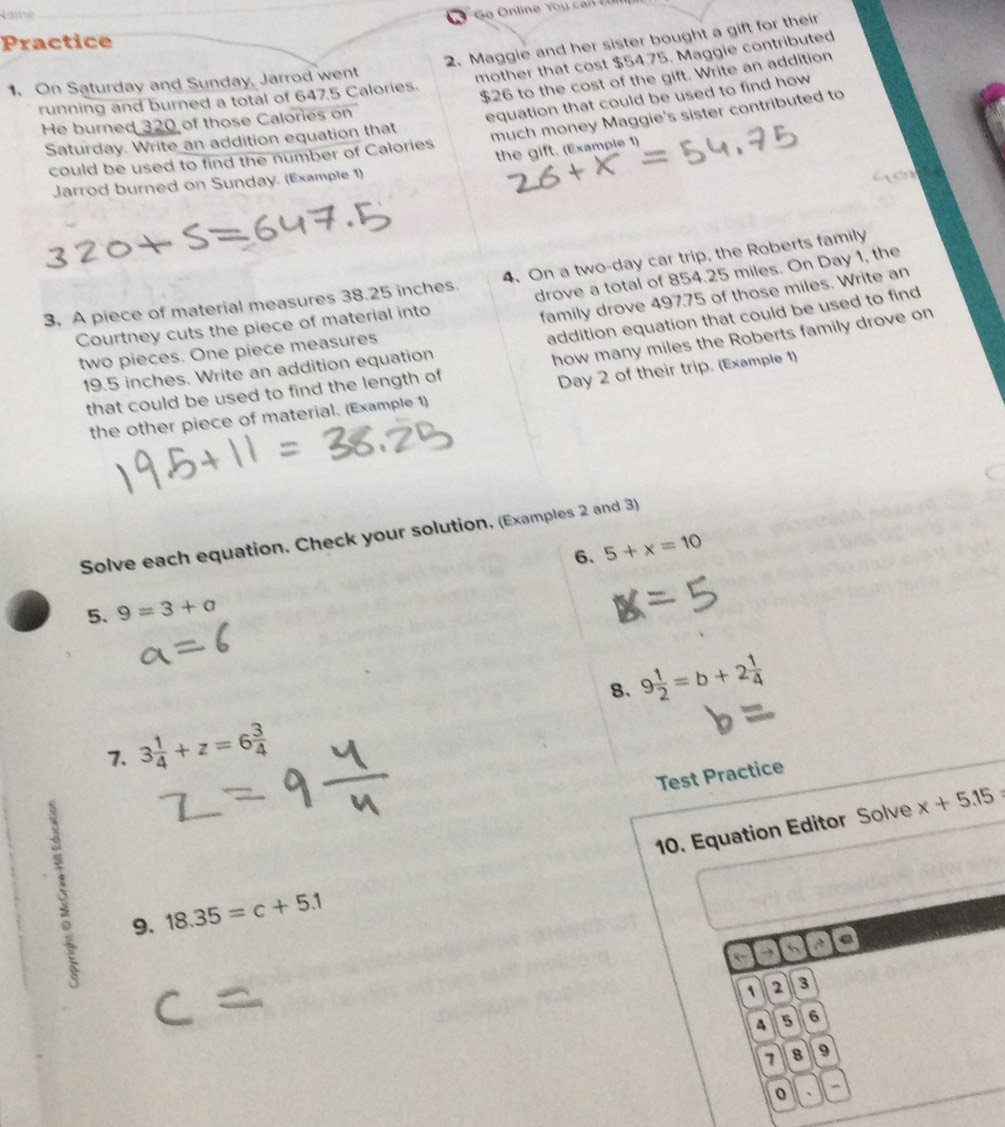 Name
Practice
Go Online You can
1. On Saturday and Sunday, Jarrod went
running and burned a total of 647.5 Calories.
He burned 320 of those Calories on
Saturday. Write an addition equation that
could be used to find the number of Calories
Jarrod burned on Sunday. (Example 1)
320+S=647.5
2. Maggie and her sister bought a gift for their
mother that cost $54.75. Maggie contributed
$26 to the cost of the gift. Write an addition
equation that could be used to find how
much money Maggie's sister contributed to
the gift. (Example 1)
26+x=54.75
3. A piece of material measures 38.25 inches.
Courtney cuts the piece of material into
two pieces. One piece measures
19.5 inches. Write an addition equation
that could be used to find the length of
the other piece of material. (Example 1)
19.5+11=38.25
4. On a two-day car trip, the Roberts family
drove a total of 854.25 miles. On Day 1, the
family drove 497.75 of those miles. Write an
addition equation that could be used to find
how many miles the Roberts family drove on
Day 2 of their trip. (Example 1)
Solve each equation. Check your solution. (Examples 2 and 3)
5. 9 = 3 + a
a=6
6. 5 + x = 10
x=5
7. 3 1/4 + z = 6 3/4
z=9 4/4
8. 9 1/2 = b + 2 1/4
b=
9. 18.35 = c + 5.1
c=
Test Practice
10. Equation Editor Solve x + 5.15 =
1 2 3
4 5 6
7 8 9
0 . −
Copyright © McGraw-Hill Education